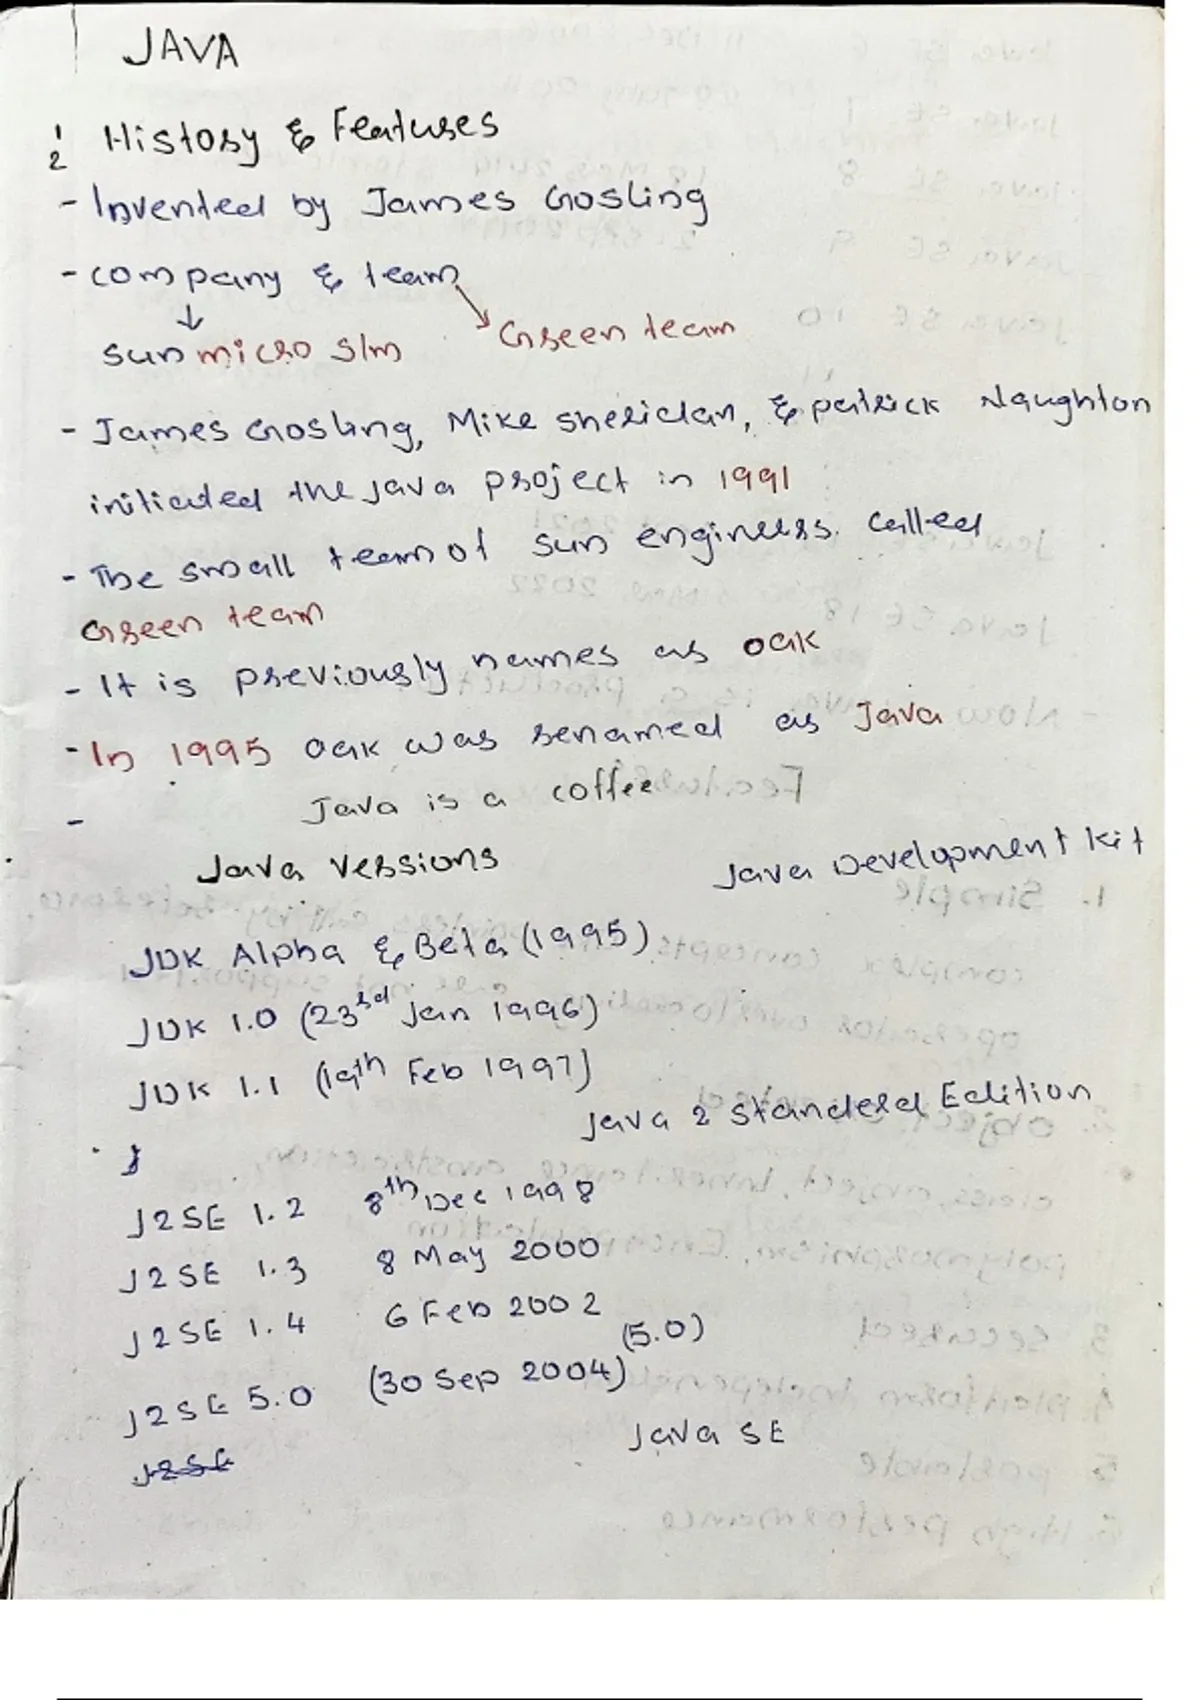 JAVA
1/2 History & Features
- Invented by James Gosling
- company & team
sun micro s/m Green team
- James Gosling, Mike sheridan, & patrick Naughton
initiated the java project in 1991
- The small team of sun engineers. called
Green team
- It is previously names as oak
- In 1995 oak was renamed as Java
- Java is a coffee
Java versions Java Development kit
JDK Alpha & Beta (1995)
JDK 1.0 (23rd Jan 1996)
JDK 1.1 (19th Feb 1997)
Java 2 standered Edition
J2SE 1.2 8th Dec 1998
J2SE 1.3 8 May 2000
J2SE 1.4 6 Feb 2002
(5.0)
J2SE 5.0 (30 Sep 2004)
Java SE
J2SE